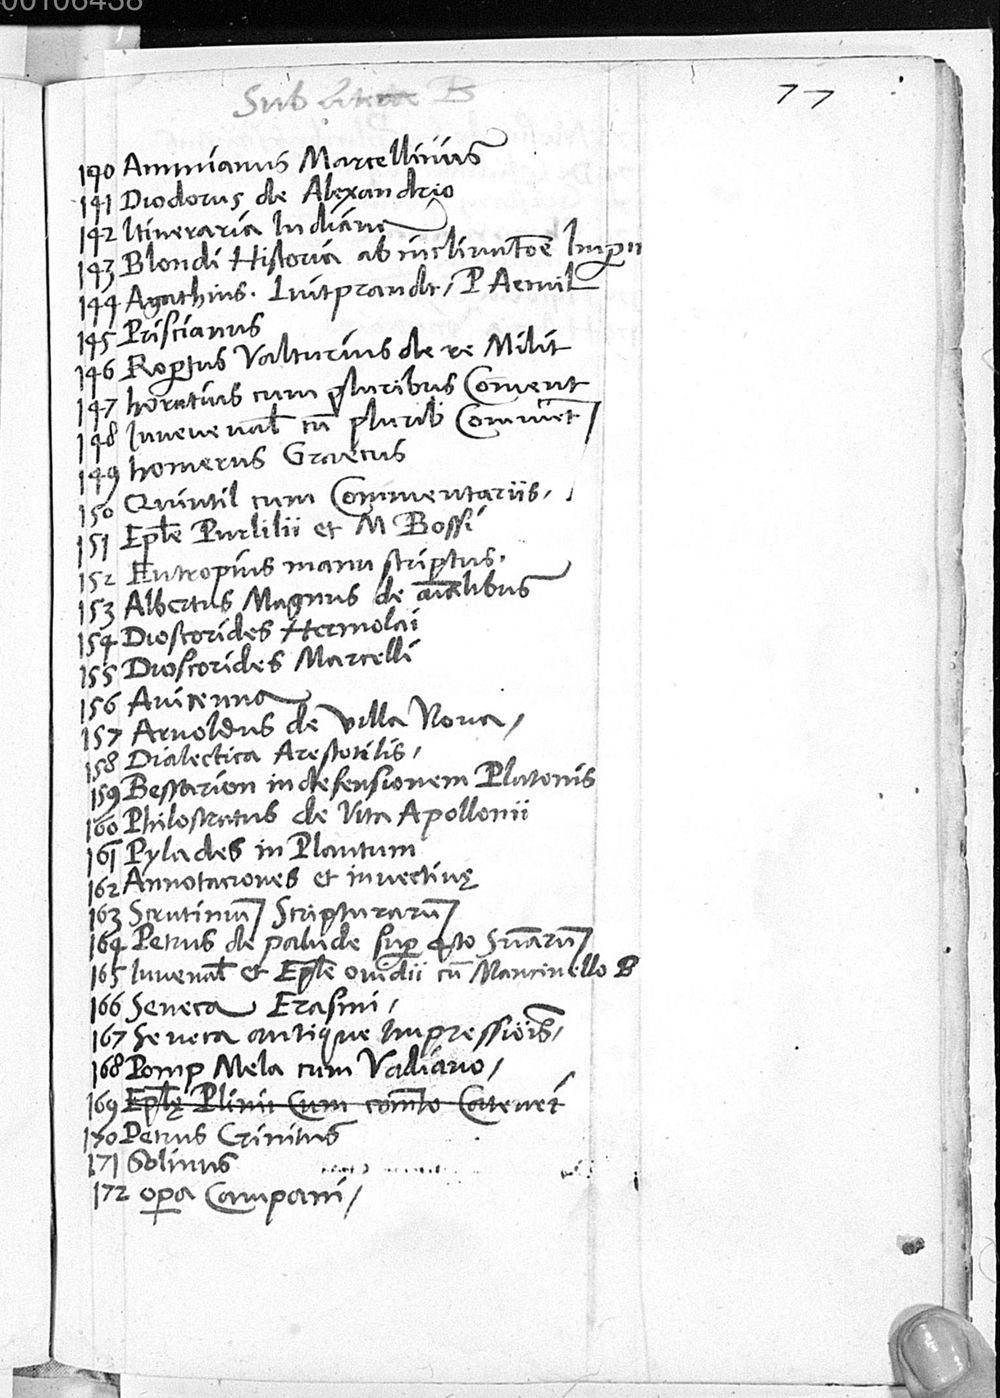 00106438
Sub litera B
77
140 Ammianus Marcellinus
141 Diodorus de Alexandrio
142 Itineraria Indiane
143 Blondi Historia ab inclinatōe Imperii
144 Agathius. Luitprandt / P Aemil
145 Priscianus
146 Roptus Valturius de re Milit
147 horatius cum pluribus Coment
148 Iuvenal cū plurib Comment /
149 homerus Graecus
150 Quintil cum Commentariis.
151 Eple Purlilii et M Bossi
152 Eutropius manu scriptus.
153 Albertus Magnus de aīalibus
154 Dioscorides Hermolai
155 Dioscorides Marcelli
156 Avicenna
157 Arnoldus de villa Nova /
158 Dialectica Arestotilis /
159 Bessarion in defensionem Platonis
160 Philostratus de Vita Apollonii
161 Pylades in Plautum
162 Annotaciones et invectivę
163 Scrutiniū Scripturarū
164 Petrus de palude sup qto Sniarū
165 Iuvenal et Eple ovidii cū Mancinello B
166 Seneca Erasmi /
167 Seneca antique Impressiōis /
168 Pomp Mela cum Vadiano /
169 Eplę Plinii Cum comēto Catenei
170 Petrus Crinitus
171 Solinus
172 opa Campani /